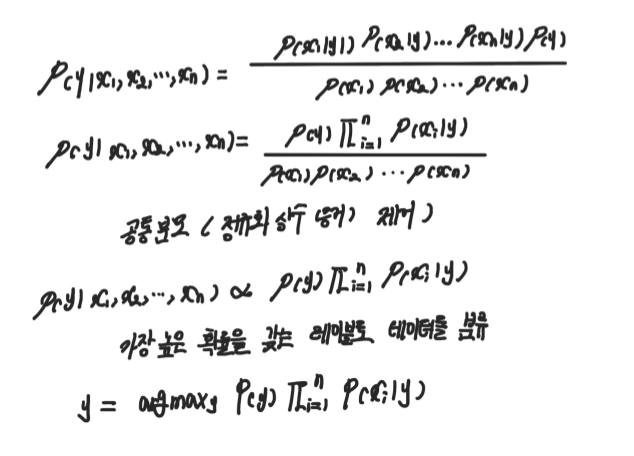 P(y|x₁, x₂, ..., xₙ) = P(x₁|y) P(x₂|y) ... P(xₙ|y) P(y) / P(x₁) P(x₂) ... P(xₙ)
P(y|x₁, x₂, ..., xₙ) = P(y) ∏ᵢ₌₁ⁿ P(xᵢ|y) / P(x₁) P(x₂) ... P(xₙ)
공통분모 ( 정규화 상수 (증거) 제거 )
P(y|x₁, x₂, ..., xₙ) ∝ P(y) ∏ᵢ₌₁ⁿ P(xᵢ|y)
가장 높은 확률을 갖는 레이블로 데이터를 분류
y = argmax y P(y) ∏ᵢ₌₁ⁿ P(xᵢ|y)